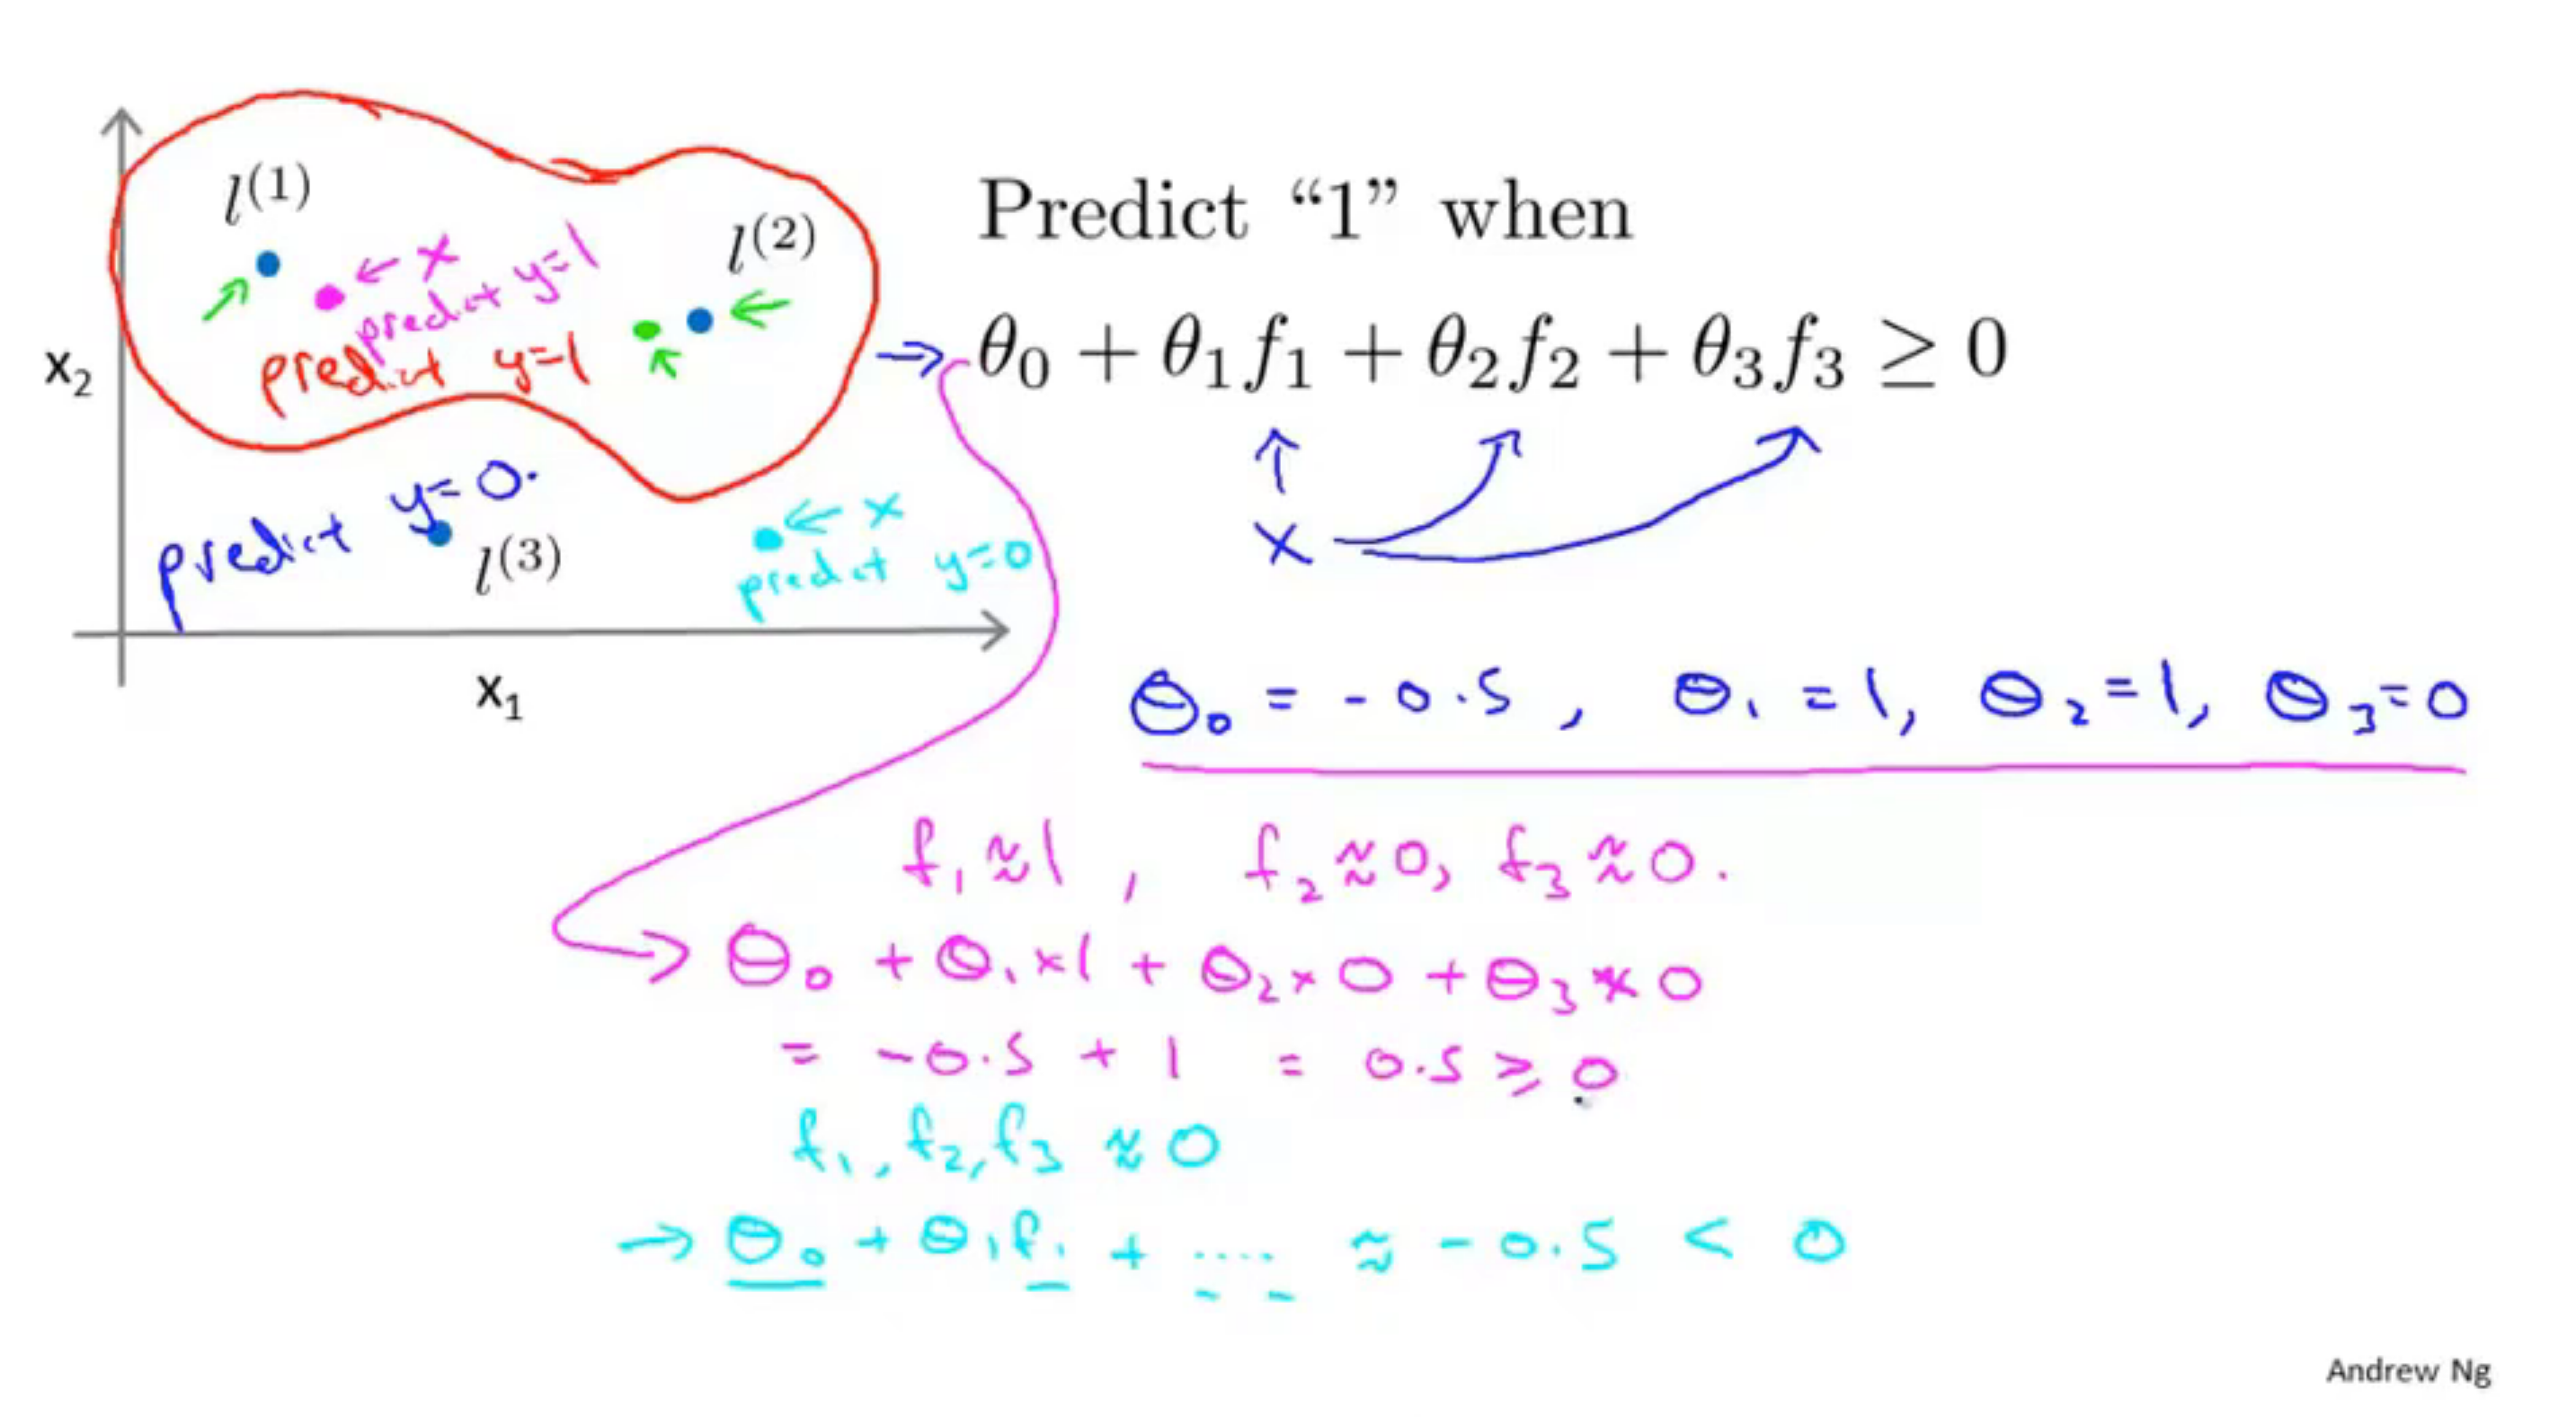 l^{(1)}
← x
predict y=1
l^{(2)}
predict y=1
x₂
predict y=0.
l^{(3)}
← x
predict y=0
x₁
Predict “1” when
→ θ₀ + θ₁f₁ + θ₂f₂ + θ₃f₃ ≥ 0
x
θ₀ = -0.5, θ₁ = 1, θ₂ = 1, θ₃ = 0
f₁ ≈ 1, f₂ ≈ 0, f₃ ≈ 0.
→ θ₀ + θ₁×1 + θ₂×0 + θ₃×0
= -0.5 + 1 = 0.5 ≥ 0
f₁, f₂, f₃ ≈ 0
→ θ₀ + θ₁f₁ + .... ≈ -0.5 < 0
Andrew Ng